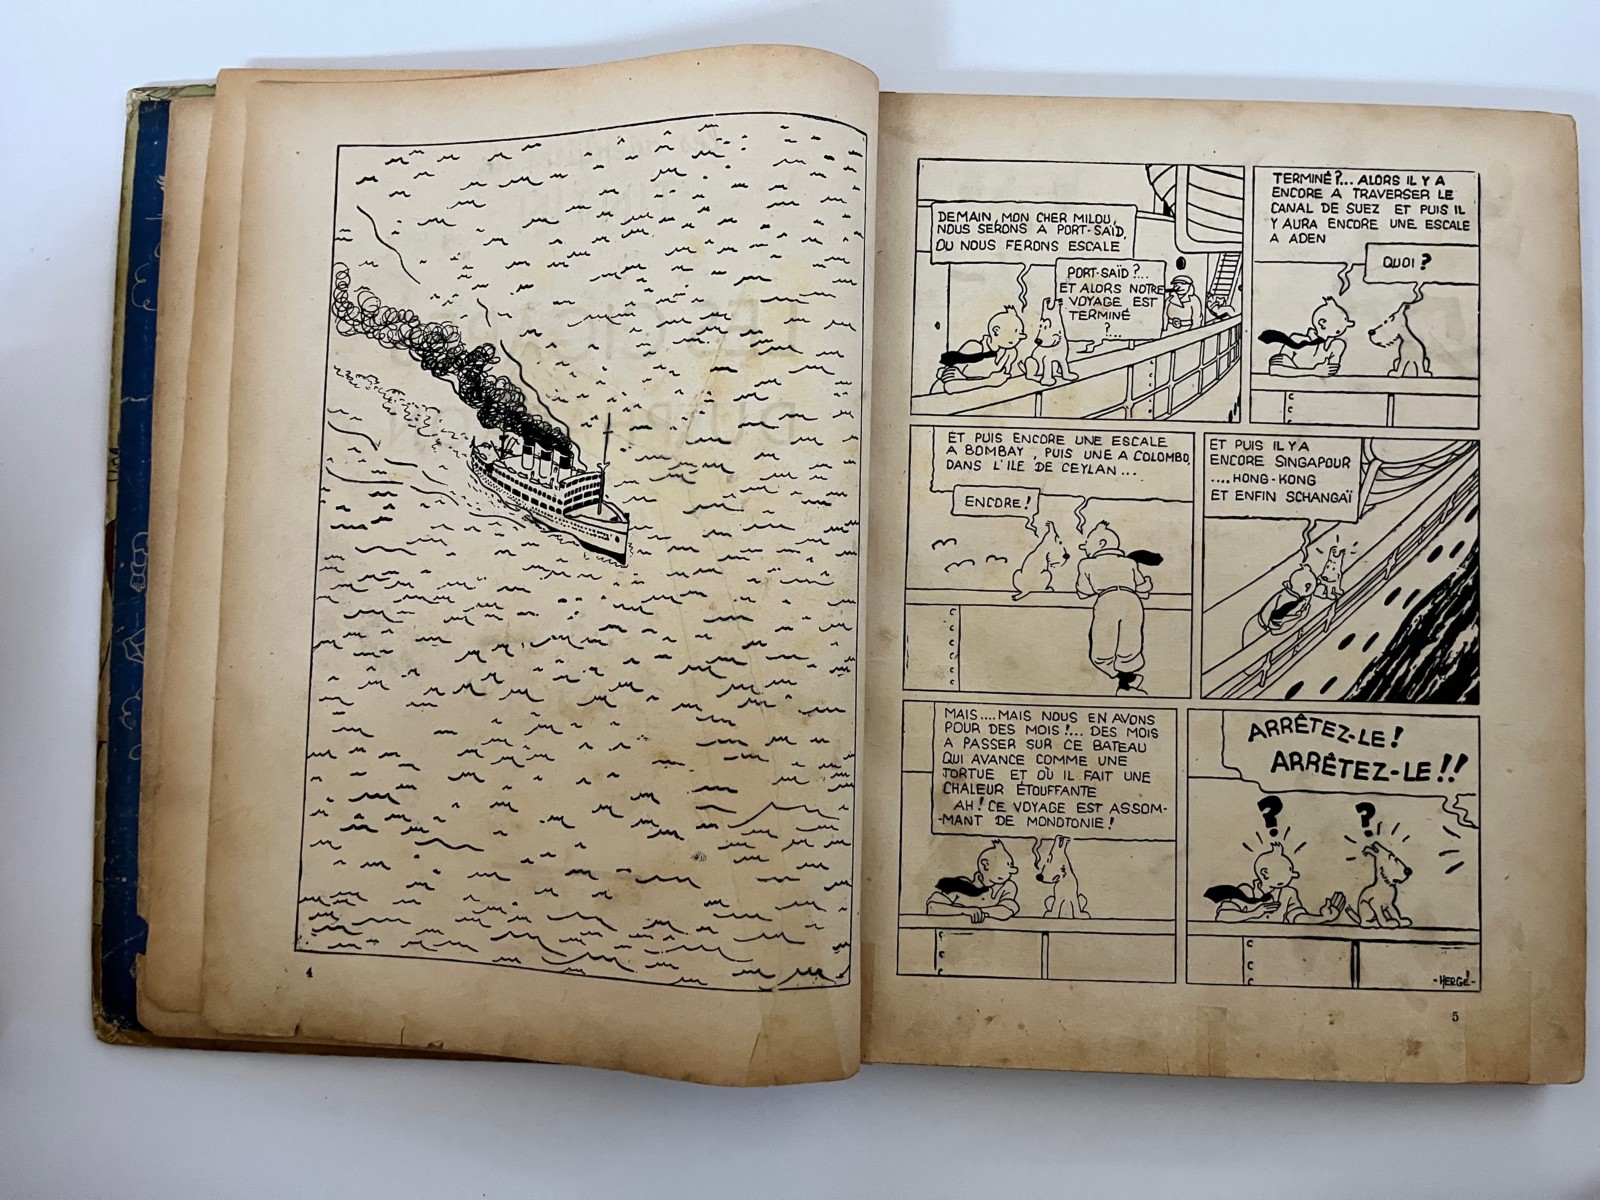 4
DEMAIN, MON CHER MILOU,
NOUS SERONS A PORT-SAÏD,
OU NOUS FERONS ESCALE
PORT-SAÏD ?...
ET ALORS NOTRE
VOYAGE EST
TERMINÉ
?...
TERMINÉ ?... ALORS IL Y A
ENCORE A TRAVERSER LE
CANAL DE SUEZ ET PUIS IL
Y AURA ENCORE UNE ESCALE
A ADEN
QUOI ?
ET PUIS ENCORE UNE ESCALE
A BOMBAY, PUIS UNE A COLOMBO,
DANS L'ILE DE CEYLAN...
ENCORE !
ET PUIS IL Y A
ENCORE SINGAPOUR
....HONG-KONG
ET ENFIN SCHANGAÏ
MAIS.... MAIS NOUS EN AVONS
POUR DES MOIS !... DES MOIS
A PASSER SUR CE BATEAU
QUI AVANCE COMME UNE
TORTUE ET OÙ IL FAIT UNE
CHALEUR ÉTOUFFANTE
AH ! CE VOYAGE EST ASSOM-
-MANT DE MONOTONIE !
ARRÊTEZ-LE !
ARRÊTEZ-LE !!
?
?
-HERGÉ-
5